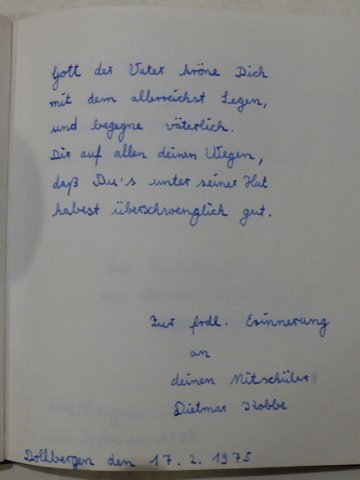 Gott der Vater kröne Dich
mit dem allerreichst Segen,
und begegne väterlich.
Dir auf allen deinen Wegen,
daß Du's unter seiner Hut
habest überschwenglich gut.
Zur frdl. Erinnerung
an
deinen Mitschüler
Dietmar Kobbe
Dollbergen den 17. 2. 1975